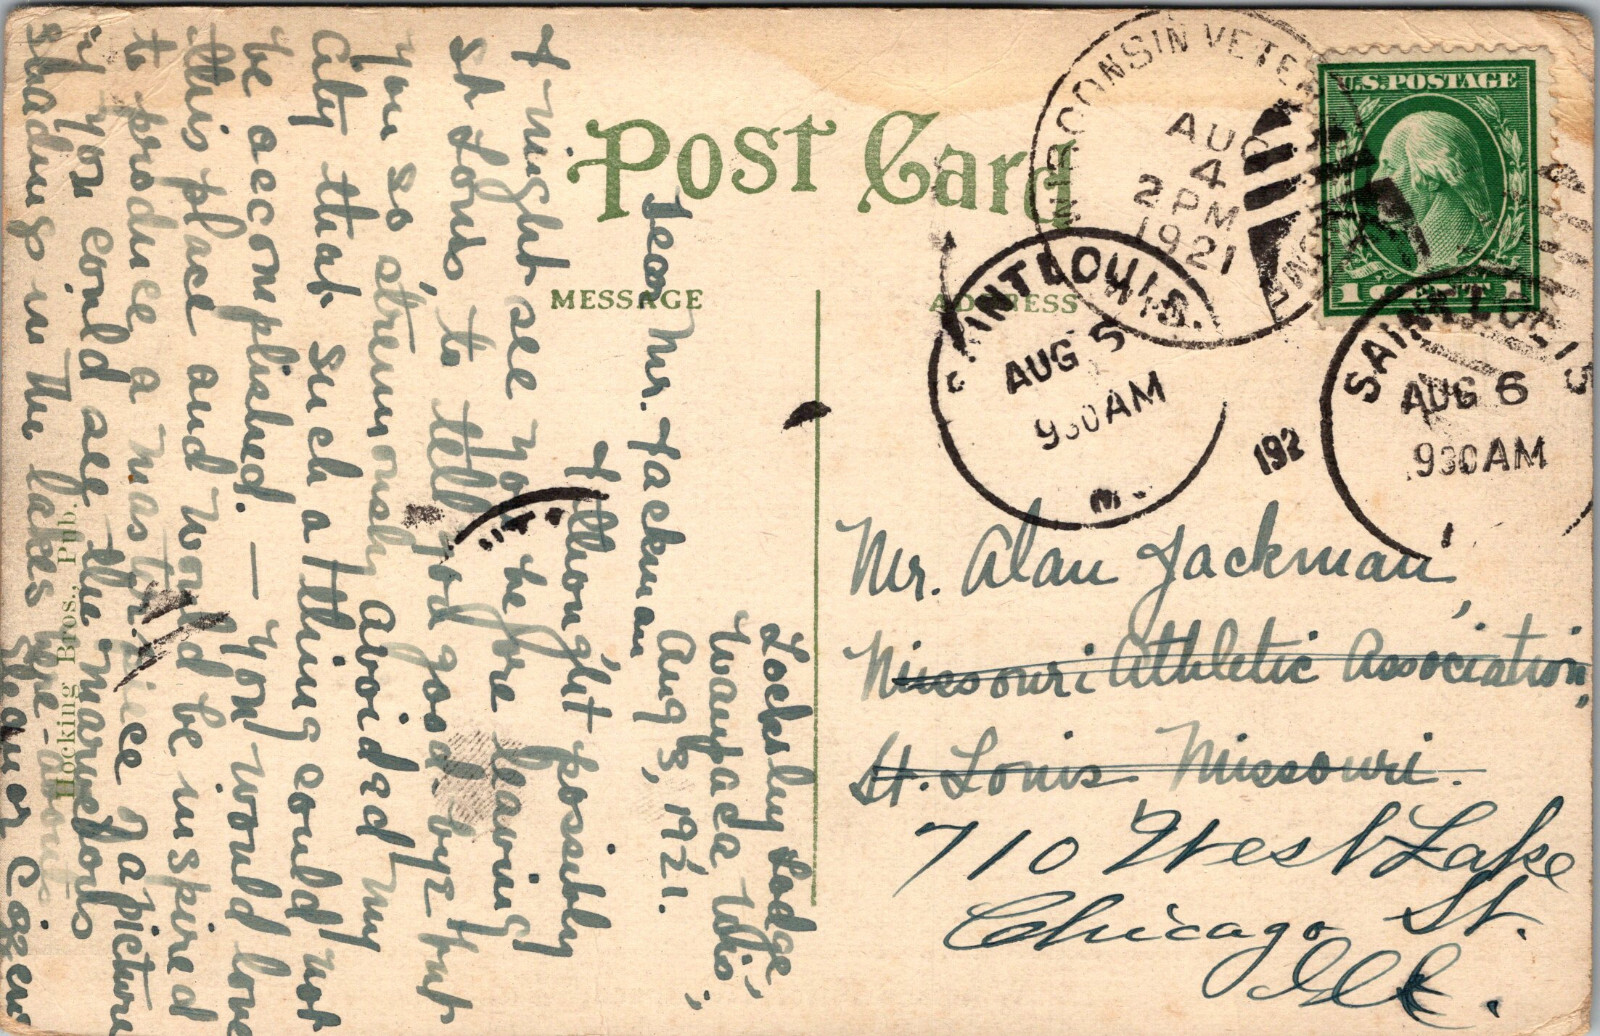 Post Card
MESSAGE
ADDRESS
U.S. POSTAGE
1 CENT 1
WISCONSIN VETERANS
AUG
4
2 PM
1921
SAINT LOUIS.
AUG 5
930AM
M.
192
SAINT LOUIS
AUG 6
930AM
Locksley Lodge,
Waupaca, Wis.,
Aug 3, 1921.
Dear Mr. Jackman
I thought possibly
I might see you before leaving
St Louis to tell you good bye but
you so strenuously avoided my
City that such a thing could not
be accomplished. — you would love
this place and would be inspired
to produce a masterpiece of a picture
if you could see the marvelous
shadings in the lakes here-abouts
Eleanor
Hocking Bros., Pub.
Mr. Alan Jackman,
Missouri Athletic Association,
St. Louis Missouri.
710 West Lake
St.
Chicago
Ill.